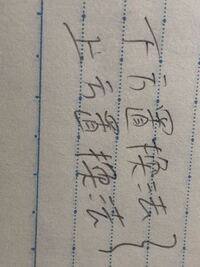 下方置換法
上方置換法